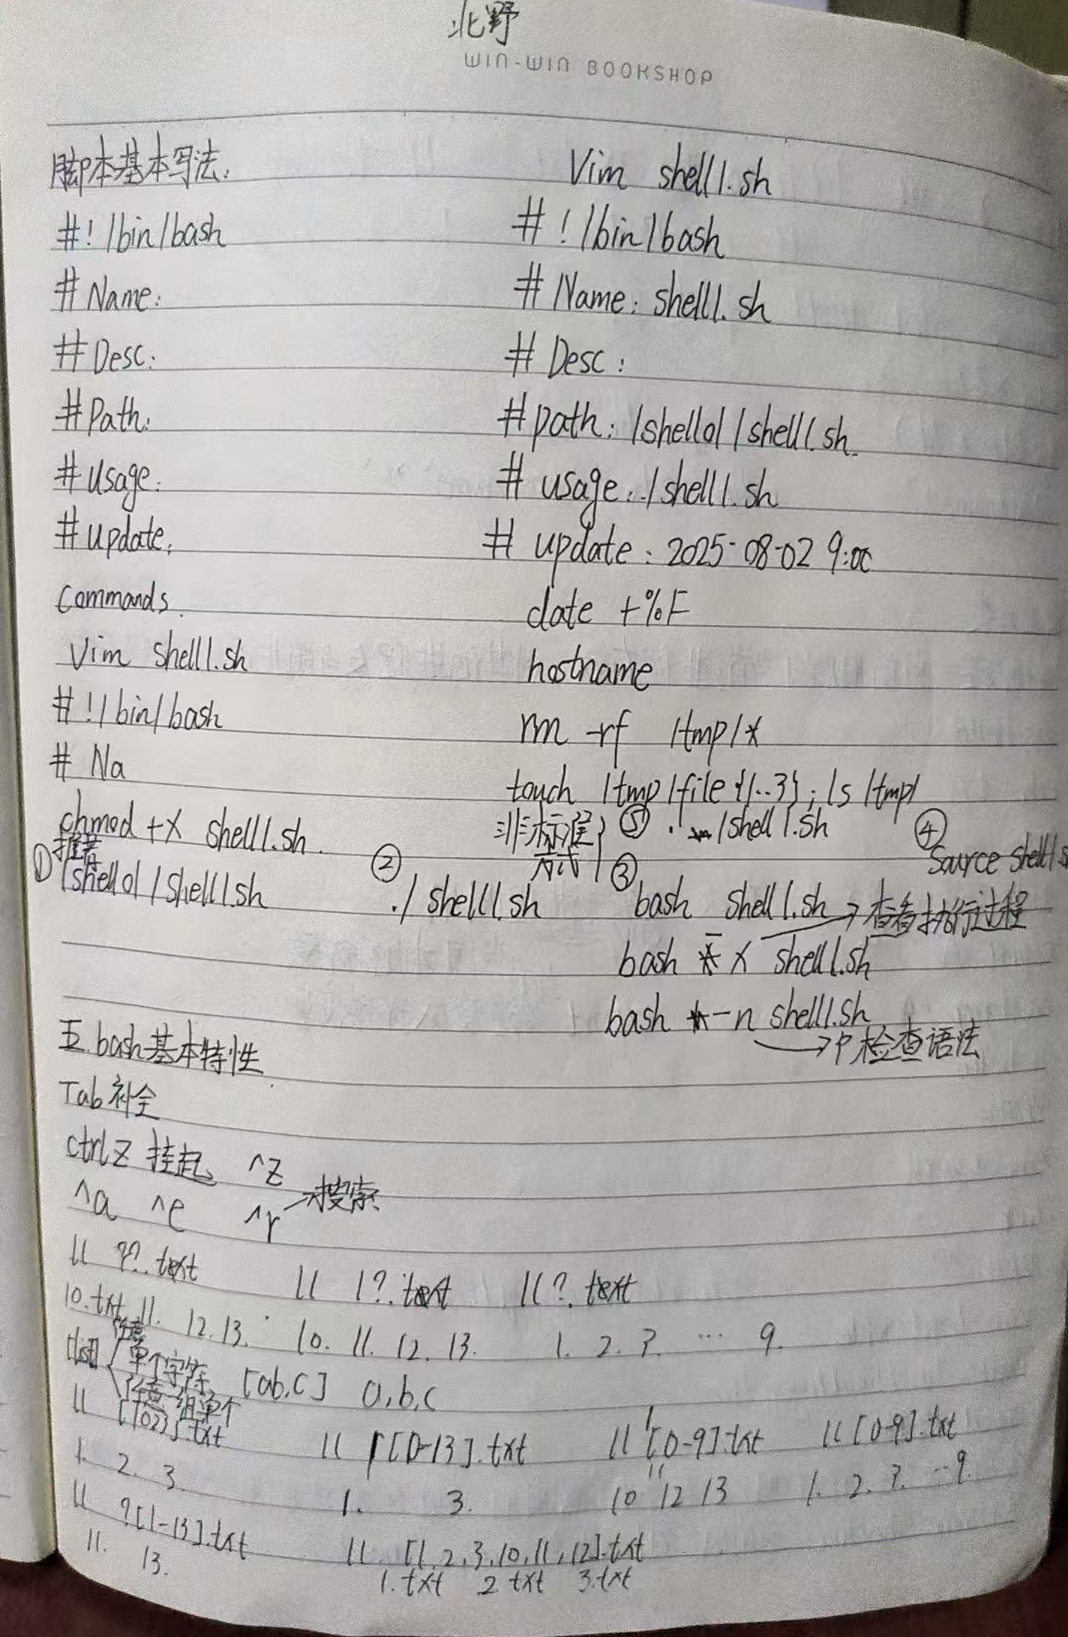 北野
WIN-WIN BOOKSHOP
脚本基本写法:
#!/bin/bash
# Name:
# Desc:
# Path:
# usage:
# update:
commands.
Vim shell1.sh
#!/bin/bash
# Na
chmod +x shell1.sh.
① 推荐
/shell01/shell1.sh
② ./shell1.sh
Vim shell1.sh
#!/bin/bash
# Name: shell1.sh
# Desc:
# path: /shell01/shell1.sh.
# usage: ./shell1.sh
# update: 2025-08-02 9:00
date +%F
hostname
rm -rf /tmp/*
touch /tmp/file{1..3}; ls /tmp/
非标准方式} ⑤ . /shell1.sh
④ Source shell1.s
③ bash shell1.sh
bash x shell1.sh → 查看执行过程
bash -n shell1.sh → 检查语法
五.bash基本特性
Tab 补全
ctrl z 挂起 ^z
^a ^e ^r → 搜索
ll ??.text ll 1?.text ll ?.text
10.txt 11. 12. 13. 10. 11. 12. 13. 1. 2. 3. ... 9.
[list] { 任意单个字符 [ab,c] a,b,c
任意一组单个
ll [102)].txt ll [[0-13].txt ll 1[0-9].txt ll [0-9].txt
1. 2. 3. 1. 3. 10 11 12 13 1. 2. 3. ... 9.
ll ?[1-13].txt ll [1,2,3,10,11,12].txt
11. 13. 1.txt 2.txt 3.txt